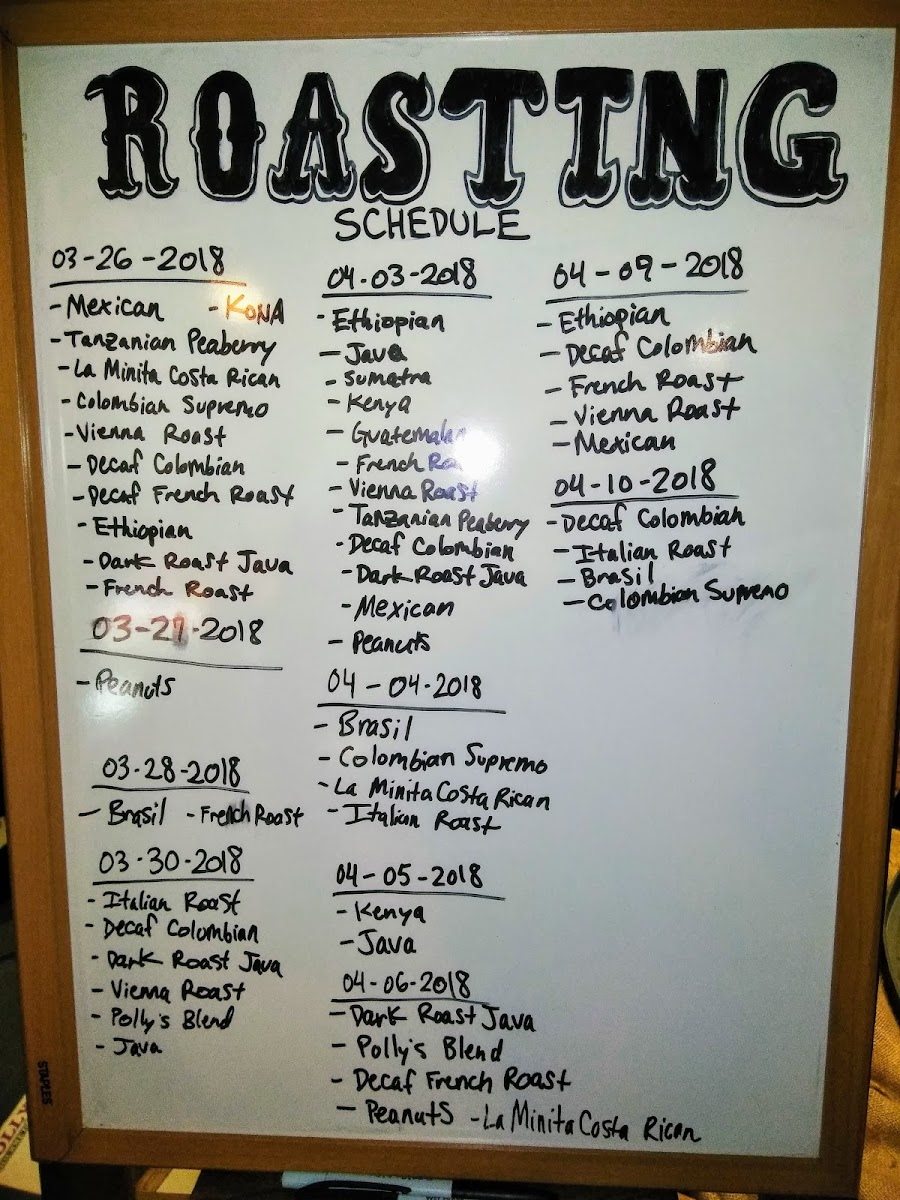 ROASTING
SCHEDULE
03-26-2018
- Mexican - KONA
- Tanzanian Peaberry
- La Minita Costa Rican
- Colombian Supremo
- Vienna Roast
- Decaf Colombian
- Decaf French Roast
- Ethiopian
- Dark Roast Java
- French Roast
03-27-2018
- Peanuts
03-28-2018
- Brasil - French Roast
03-30-2018
- Italian Roast
- Decaf Colombian
- Dark Roast Java
- Vienna Roast
- Polly's Blend
- Java
04-03-2018
- Ethiopian
- Java
- Sumatra
- Kenya
- Guatemalan
- French Roa
- Vienna Roast
- Tanzanian Peaberry
- Decaf Colombian
- Dark Roast Java
- Mexican
- Peanuts
04-04-2018
- Brasil
- Colombian Supremo
- La Minita Costa Rican
- Italian Roast
04-05-2018
- Kenya
- Java
04-06-2018
- Dark Roast Java
- Polly's Blend
- Decaf French Roast
- Peanuts - La Minita Costa Rican
04-09-2018
- Ethiopian
- Decaf Colombian
- French Roast
- Vienna Roast
- Mexican
04-10-2018
- Decaf Colombian
- Italian Roast
- Brasil
- Colombian Supremo
STAPLES